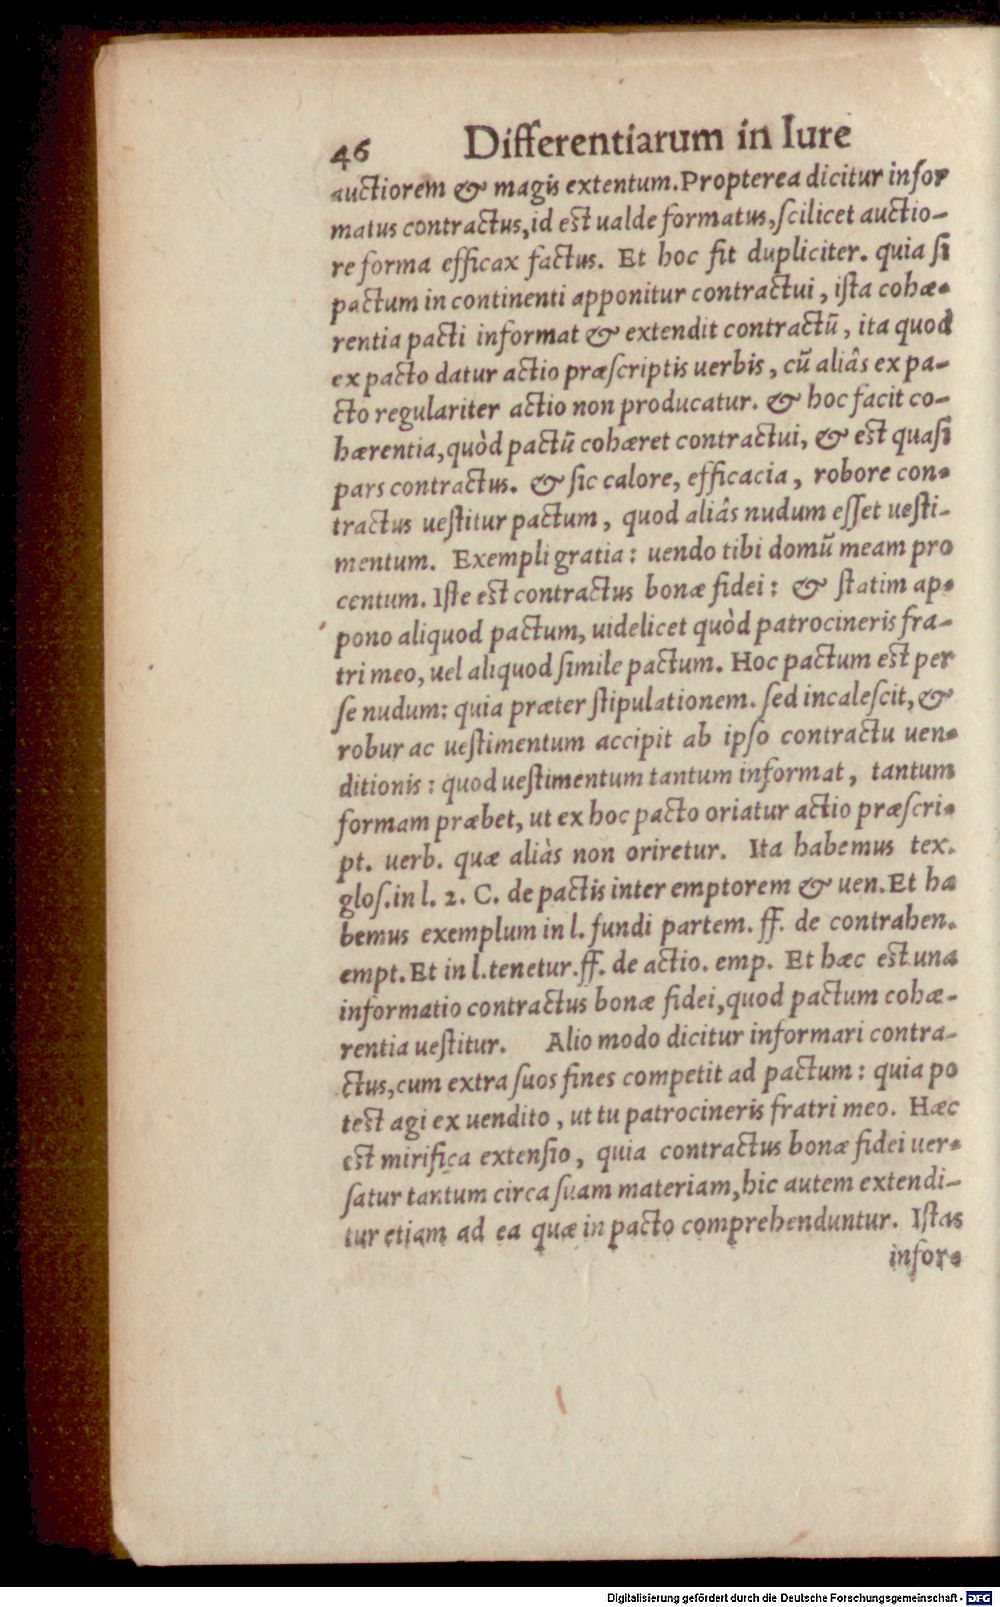 46 Differentiarum in Iure
auctiorem & magis extentum. Propterea dicitur infor
matus contractus, id est ualde formatus, ſcilicet auctio-
re forma efficax factus. Et hoc fit dupliciter. quia ſi
pactum in continenti apponitur contractui, iſta cohæ-
rentia pacti informat & extendit contractū, ita quod
ex pacto datur actio præſcriptis uerbis, cū aliâs ex pa-
cto regulariter actio non producatur. & hoc facit co-
hærentia, quòd pactū cohæret contractui, & est quaſi
pars contractus. & ſic calore, efficacia, robore con-
tractus ueſtitur pactum, quod aliâs nudum eſſet ueſti-
mentum. Exempli gratia: uendo tibi domū meam pro
centum. Iſte est contractus bonæ fidei: & ſtatim ap-
pono aliquod pactum, uidelicet quòd patrocineris fra-
tri meo, uel aliquod ſimile pactum. Hoc pactum est per
ſe nudum: quia præter ſtipulationem. ſed incaleſcit, &
robur ac ueſtimentum accipit ab ipſo contractu uen-
ditionis: quod ueſtimentum tantum informat, tantum
formam præbet, ut ex hoc pacto oriatur actio præſcri-
pt. uerb. quæ aliàs non oriretur. Ita habemus tex.
gloſ. in l. 2. C. de pactis inter emptorem & uen. Et ha
bemus exemplum in l. fundi partem. ff. de contrahen.
empt. Et in l. tenetur. ff. de actio. emp. Et hæc est una
informatio contractus bonæ fidei, quod pactum cohæ-
rentia ueſtitur. Alio modo dicitur informari contra-
ctus, cum extra ſuos fines competit ad pactum: quia po
test agi ex uendito, ut tu patrocineris fratri meo. Hæc
est mirifica extenſio, quia contractus bonæ fidei uer-
ſatur tantum circa ſuam materiam, hic autem extendi-
tur etiam ad ea quæ in pacto comprehenduntur. Iſtas
infor-
Digitalisierung gefördert durch die Deutsche Forschungsgemeinschaft - DFG